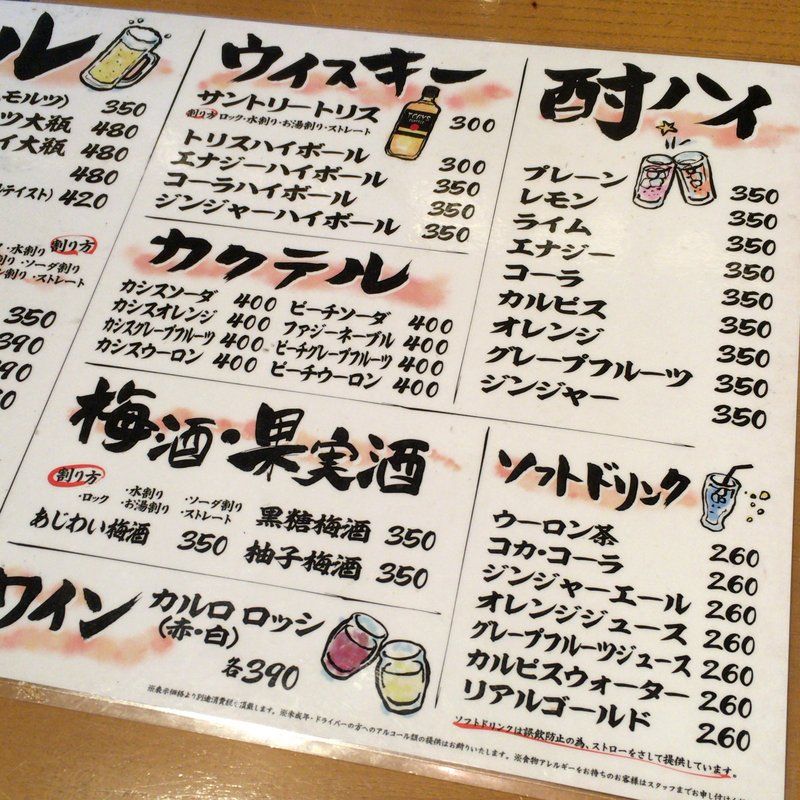 ール
モルツ) 350
ツ大瓶 480
イ大瓶 480
480
ルテイスト) 420
割り方
・水割り
・ソーダ割り
・ストレート
350
390
390
ウイスキー
サントリートリス 300
割り方 ロック・水割り・お湯割り・ストレート
トリスハイボール 300
エナジーハイボール 350
コーラハイボール 350
ジンジャーハイボール 350
カクテル
カシスソーダ 400
カシスオレンジ 400
カシスグレープフルーツ 400
カシスウーロン 400
ピーチソーダ 400
ファジーネーブル 400
ピーチグレープフルーツ 400
ピーチウーロン 400
梅酒・果実酒
割り方
・ロック ・水割り ・お湯割り ・ソーダ割り ・ストレート
あじわい梅酒 350
黒糖梅酒 350
柚子梅酒 350
ワイン
カルロ ロッシ
(赤・白)
各390
酎ハイ
プレーン 350
レモン 350
ライム 350
エナジー 350
コーラ 350
カルピス 350
オレンジ 350
グレープフルーツ 350
ジンジャー 350
ソフトドリンク
ウーロン茶 260
コカ・コーラ 260
ジンジャーエール 260
オレンジジュース 260
グレープフルーツジュース 260
カルピスウォーター 260
リアルゴールド 260
ソフトドリンクは誤飲防止の為、ストローをさして提供しています。
※表示価格より別途消費税を頂戴します。※未成年・ドライバーの方へのアルコール類の提供はお断りいたします。※食物アレルギーをお持ちのお客様はスタッフまでお申し付け